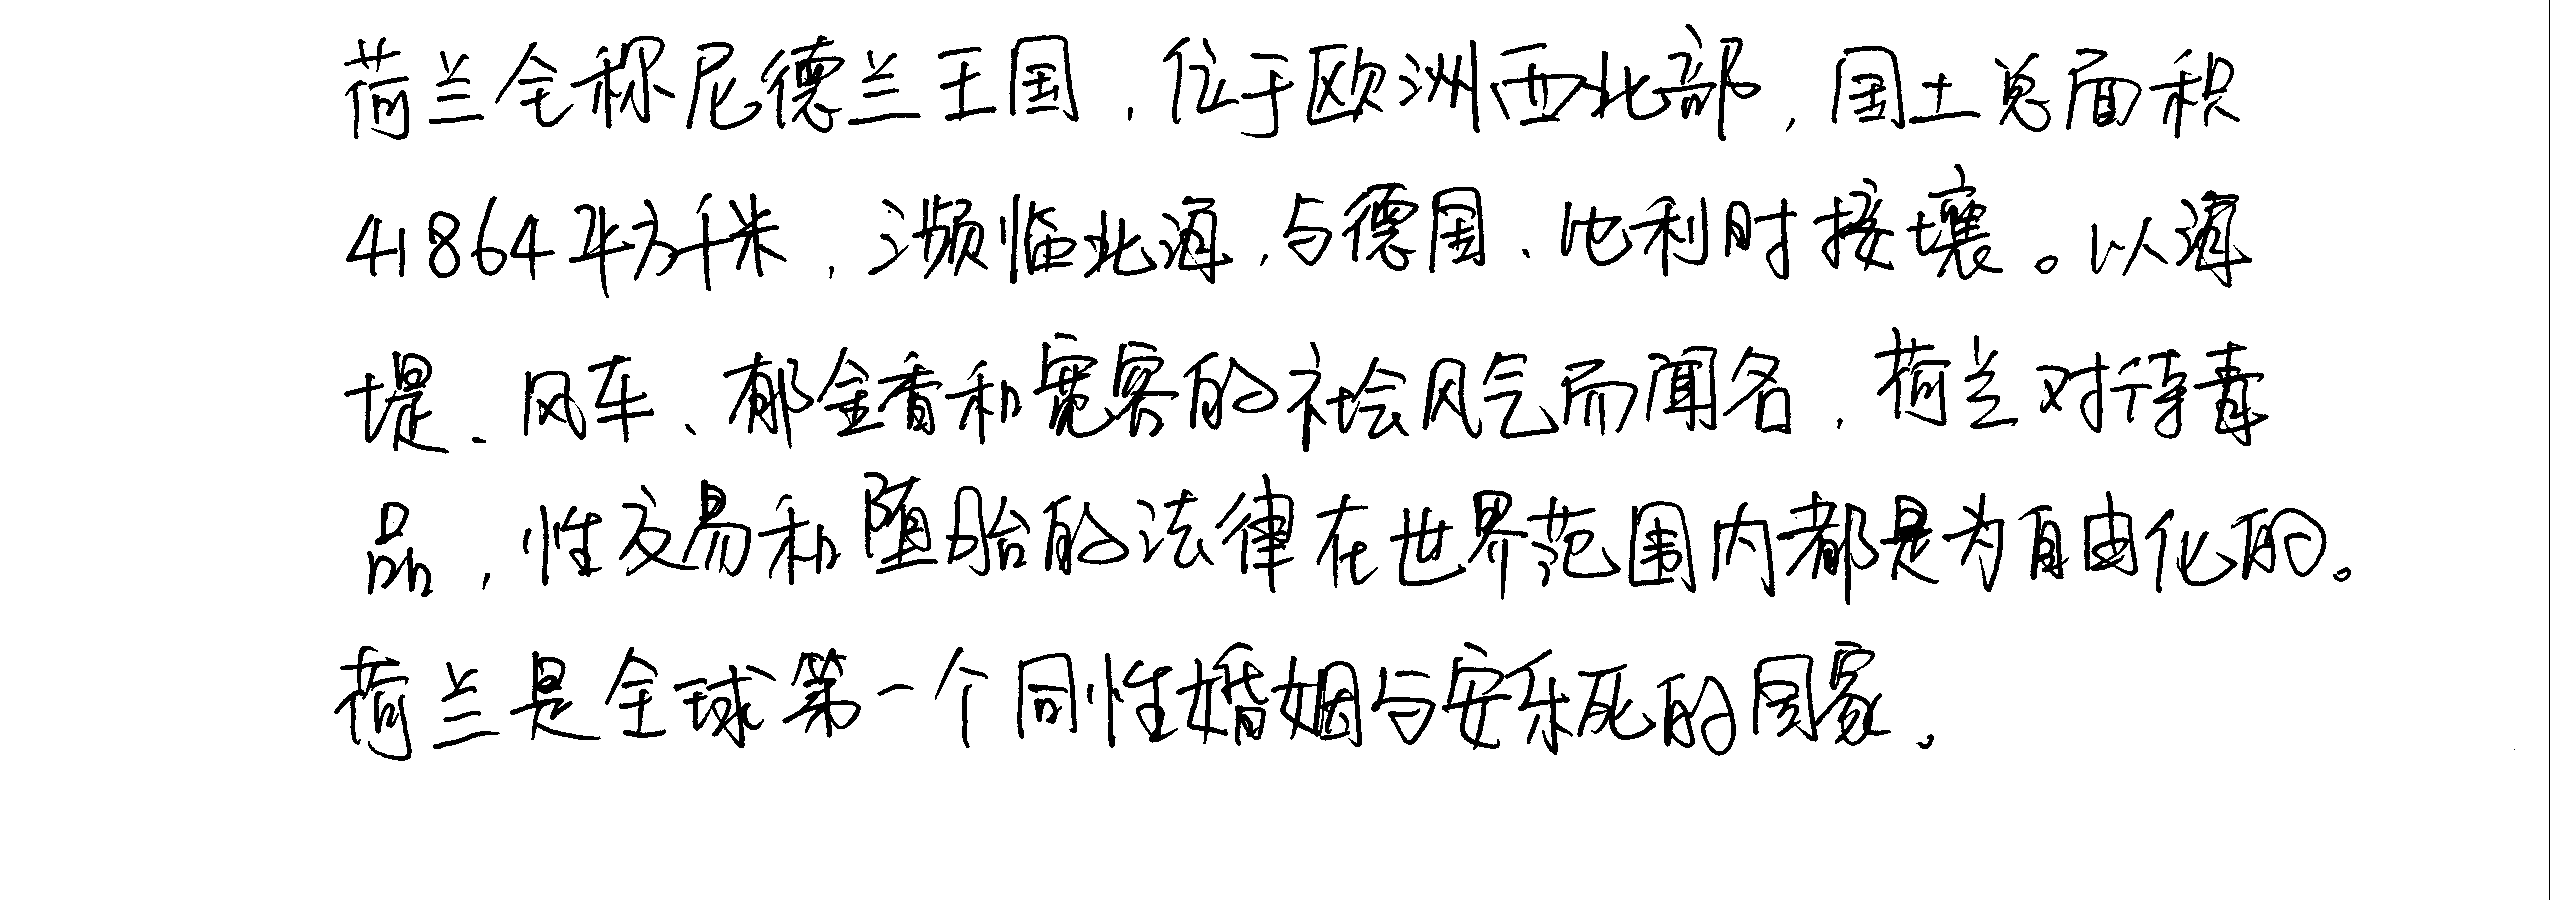 荷兰全称尼德兰王国，位于欧洲西北部，国土总面积
41864平方千米，濒临北海，与德国、比利时接壤。以海
堤、风车、郁金香和宽容的社会风气而闻名，荷兰对待毒
品，性交易和堕胎的法律在世界范围内都是为自由化的。
荷兰是全球第一个同性婚姻与安乐死的国家。